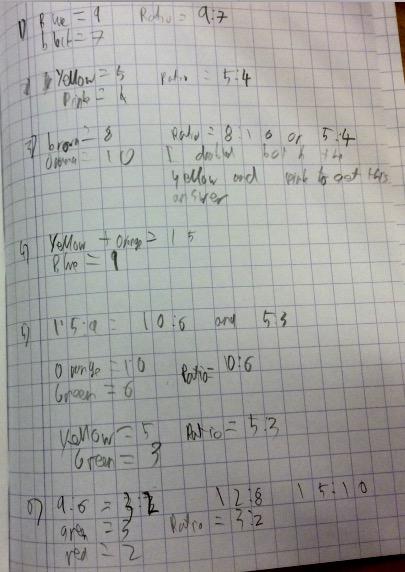 1) Blue = 9 Ratio = 9:7
black = 7
2) Yellow = 5 Ratio = 5:4
Pink = 4
3) brown = 8 Ratio = 8:10 or 5:4
= 10 I doubled both the
yellow and pink to get this
answer
4) Yellow + Orange = 15
Blue = 9
5) 15:9 = 10:6 and 5:3
Orange = 10 Ratio = 10:6
Green = 6
Yellow = 5 Ratio = 5:3
Green = 3
6) 9:6 = 3:2 12:8 15:10
green = 3 Ratio = 3:2
red = 2